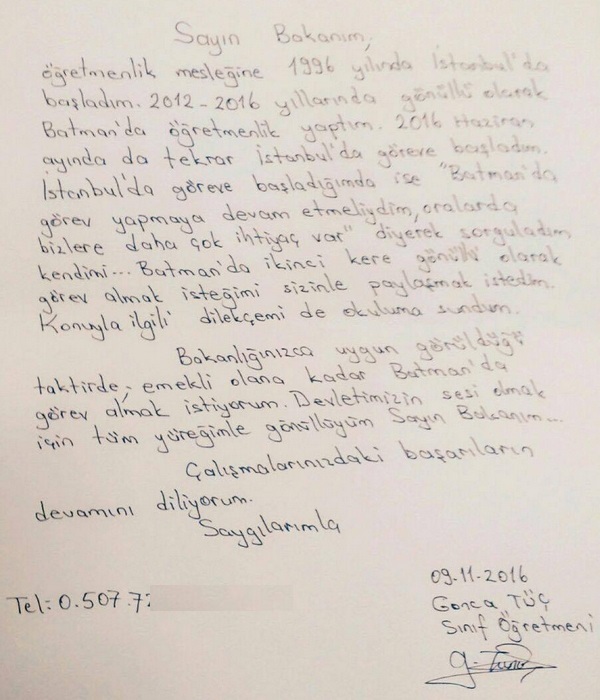 Sayın Bakanım,
öğretmenlik mesleğine 1996 yılında İstanbul'da
başladım. 2012-2016 yıllarında gönüllü olarak
Batman'da öğretmenlik yaptım. 2016 Haziran
ayında da tekrar İstanbul'da göreve başladım.
İstanbul'da göreve başladığımda ise "Batman'da
görev yapmaya devam etmeliydim, oralarda
bizlere daha çok ihtiyaç var" diyerek sorguladım
kendimi... Batman'da ikinci kere gönüllü olarak
görev almak isteğimi sizinle paylaşmak istedim.
Konuyla ilgili dilekçemi de okuluma sundum.
Bakanlığınızca uygun görüldüğü
taktirde; emekli olana kadar Batman'da
görev almak istiyorum. Devletimizin sesi olmak
için tüm yüreğimle gönüllüyüm Sayın Bakanım...
Çalışmalarınızdaki başarıların
devamını diliyorum.
Saygılarımla
09.11.2016
Tel: 0.507.7
Gonca TÜÇ
Sınıf Öğretmeni